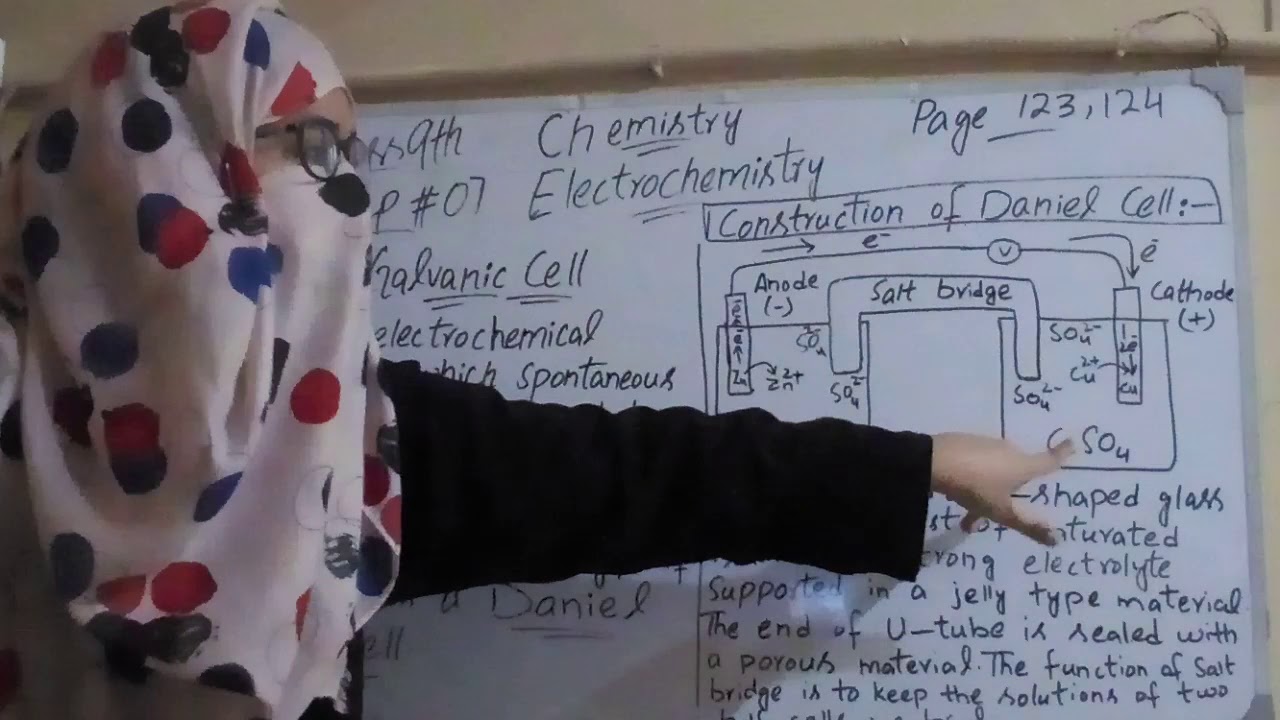 ss 9th Chemistry Page 123,124
P #07 Electrochemistry
Galvanic Cell
electrochemical
which spontaneous
a Daniel
ell
Construction of Daniel Cell:-
e⁻ V e⁻
Anode (-) Salt bridge Cathode (+)
SO₄²⁻ SO₄²⁻
Zn Zn²⁺ Cu²⁺ Cu
SO₄²⁻ SO₄²⁻
SO₄
-shaped glass
st of turated
rong electrolyte
Supported in a jelly type material
The end of U-tube is sealed with
a porous material. The function of Salt
bridge is to keep the solutions of two